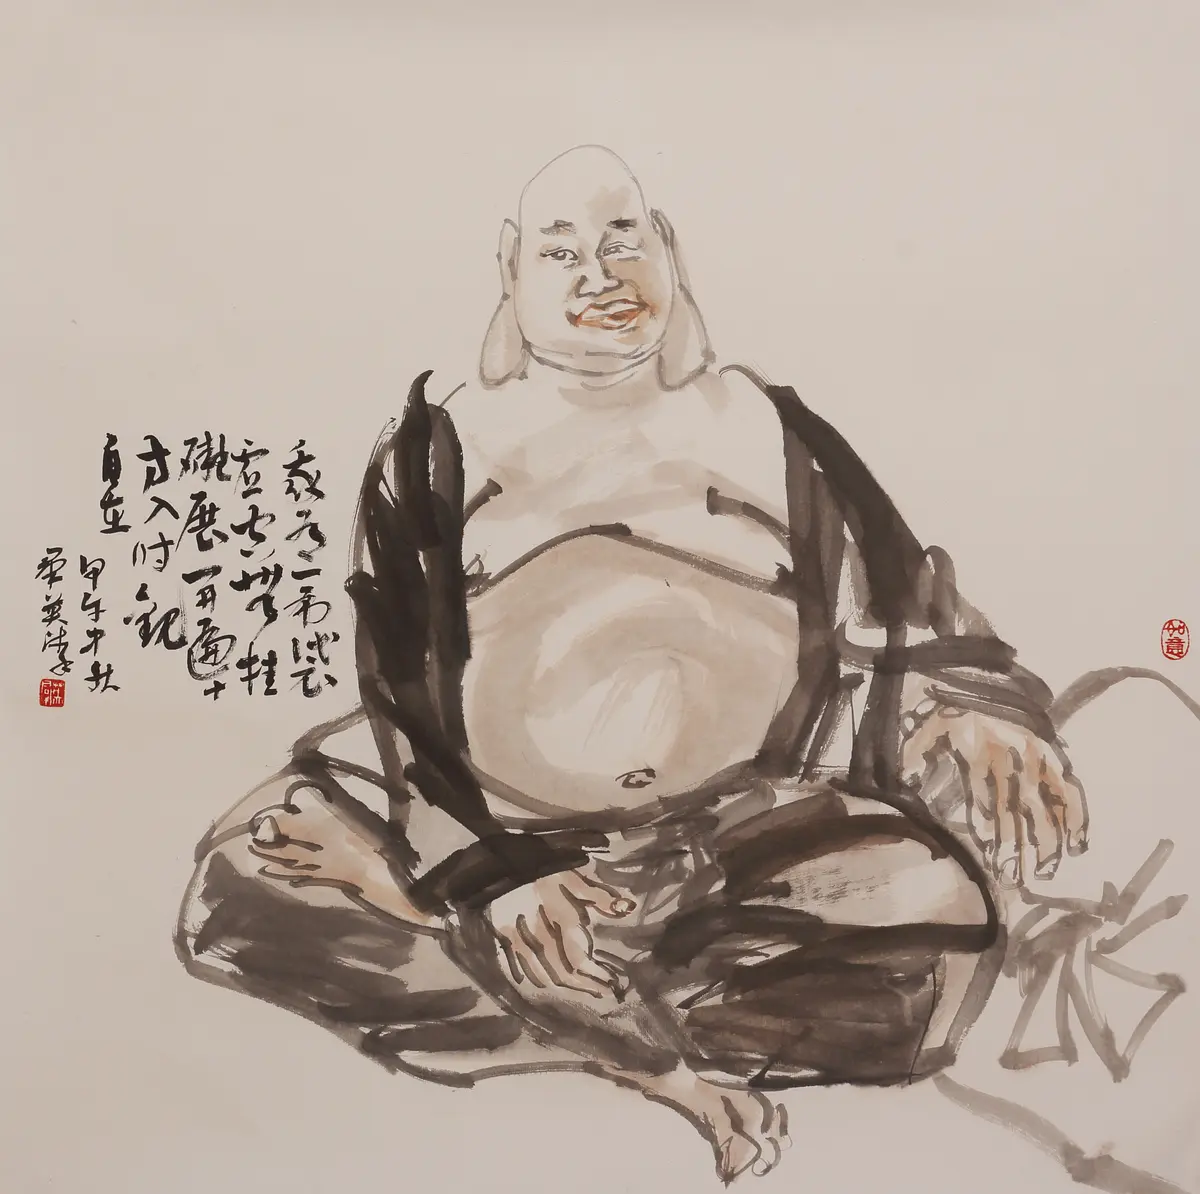 我有一布袋
虚空無挂
礙展开遍十
方入时觀
自在
甲午中秋
英
如意